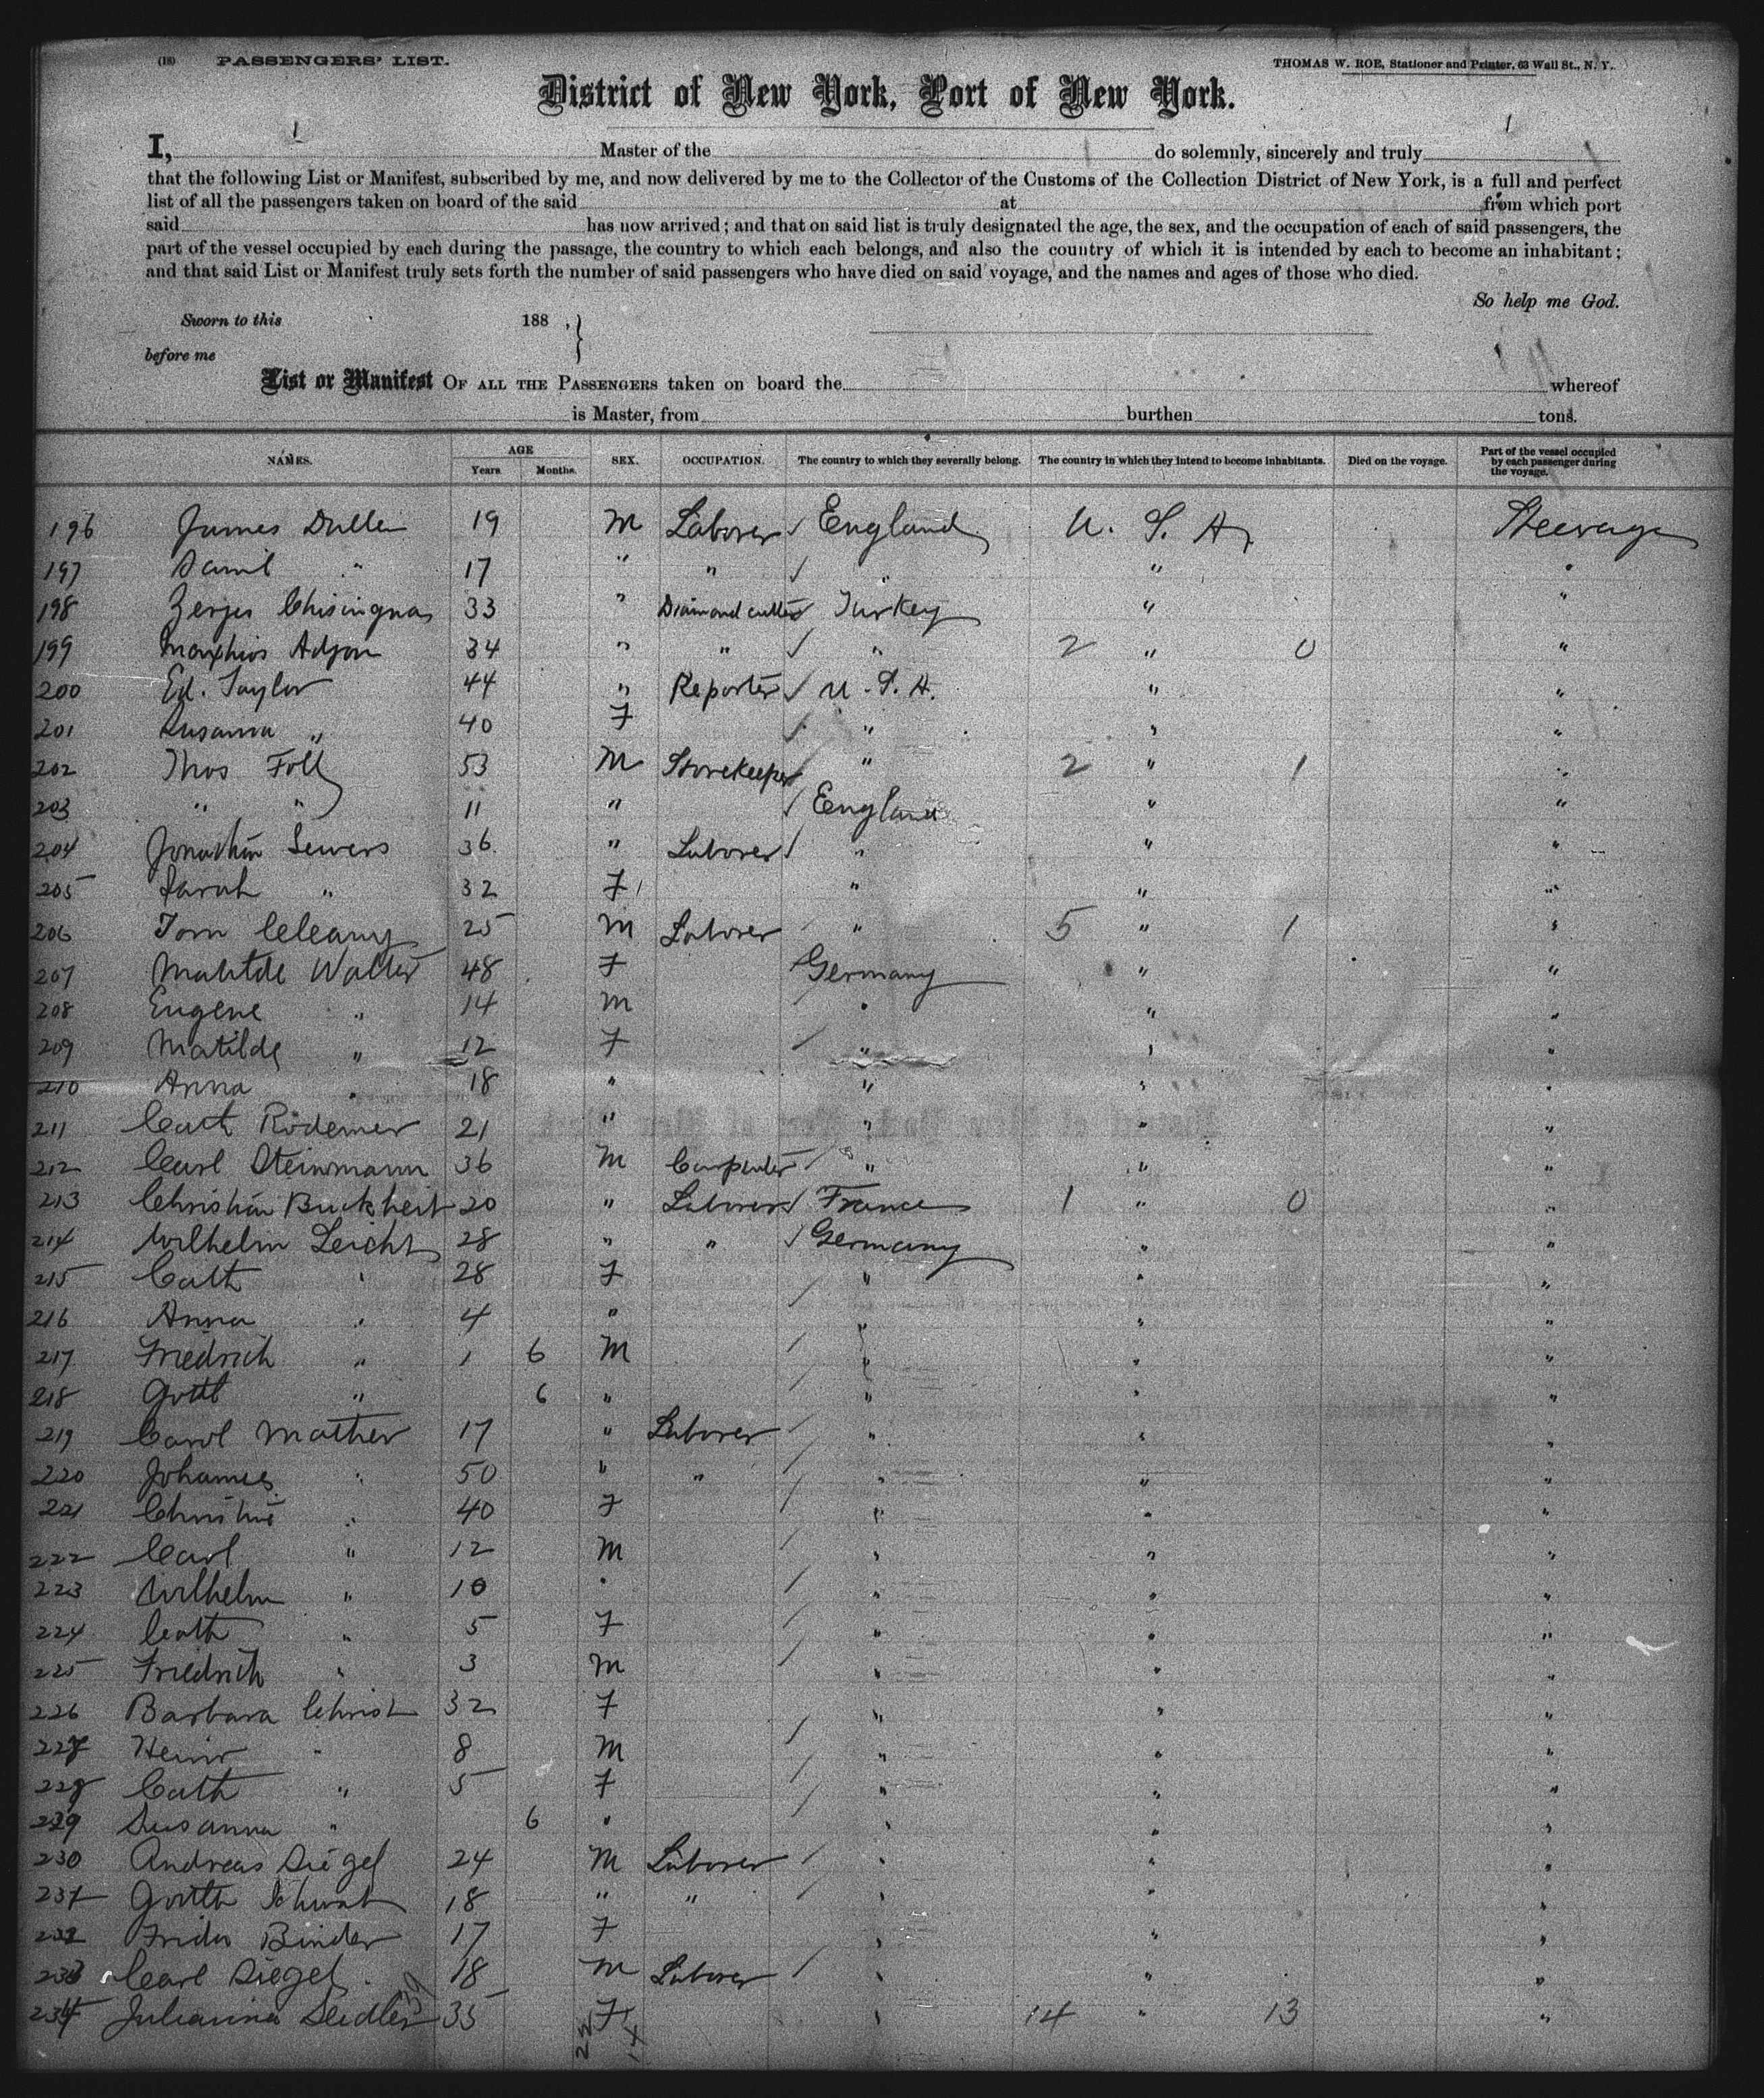 (18) PASSENGERS' LIST. THOMAS W. ROE, Stationer and Printer, 63 Wall St., N. Y.
District of New York, Port of New York.
I, Master of the do solemnly, sincerely and truly
that the following List or Manifest, subscribed by me, and now delivered by me to the Collector of the Customs of the Collection District of New York, is a full and perfect
list of all the passengers taken on board of the said at from which port
said has now arrived; and that on said list is truly designated the age, the sex, and the occupation of each of said passengers, the
part of the vessel occupied by each during the passage, the country to which each belongs, and also the country of which it is intended by each to become an inhabitant;
and that said List or Manifest truly sets forth the number of said passengers who have died on said voyage, and the names and ages of those who died.
So help me God.
Sworn to this 188 ,
before me
List or Manifest OF ALL THE PASSENGERS taken on board the whereof
is Master, from burthen tons.
NAMES. AGE Years Months. SEX. OCCUPATION. The country to which they severally belong. The country in which they intend to become inhabitants. Died on the voyage. Part of the vessel occupied by each passenger during the voyage.
196 James 19 M Laborer England U. S. A. Steerage
197 " 17 " " " " "
198 33 " Diamond cutter Turkey " "
199 34 " " " 2 " 0 "
200 Ed. Taylor 44 " Reporter U. S. A. " "
201 Susanna " 40 F " " "
202 Thos Foll 53 M Storekeeper " 2 " 1 "
203 " " 11 " England " "
204 Jonathan Sewers 36 " Laborer " " "
205 Sarah " 32 F " " "
206 Tom 25 M Laborer " 5 " 1 "
207 Matilde Walter 48 F Germany " "
208 Eugene " 14 M " " "
209 Matilde " 12 F " " "
210 Anna " 18 " " " "
211 Cath Rodemer 21 " " " "
212 Carl Steinmann 36 M Carpenter " " "
213 Christian Buckheit 20 " Laborer France 1 " 0 "
214 Wilhelm Leicht 28 " " Germany " "
215 Cath " 28 F " " "
216 Anna " 4 " " " "
217 Friedrich " 1 6 M " " "
218 Gottl " 6 " " " "
219 Carol Mather 17 " Laborer " " "
220 Johannes " 50 " " " " "
221 Christine " 40 F " " "
222 Carl " 12 M " " "
223 Wilhelm " 10 " " " "
224 Cath " 5 F " " "
225 Friedrich " 3 M " " "
226 Barbara Christ 32 F " " "
227 Heinr " 8 M " " "
228 Cath " 5 F " " "
229 Susanna " 6 " " " "
230 Andreas Siegel 24 M Laborer " " "
231 Gottl Schwab 18 " " " " "
232 Frida Binder 17 F " " "
233 Carl Siegel 18 M Laborer " " "
234 Julianna Seidler 35 F " 14 " 13 "